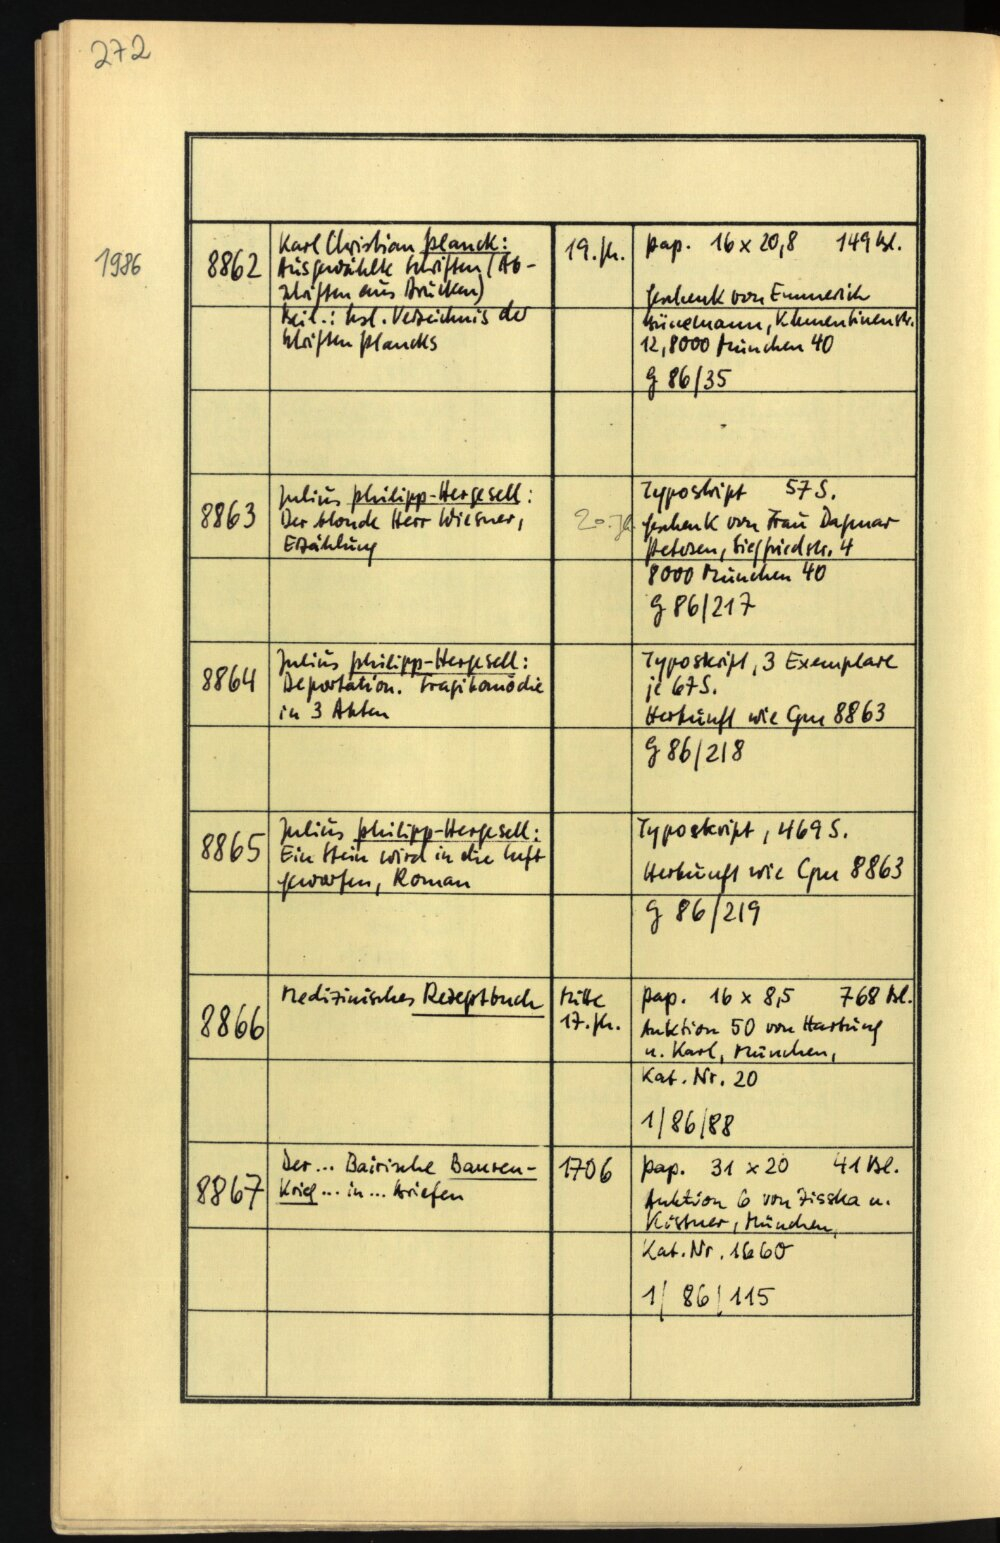 272
1986
8862
Karl Christian Planck:
Ausgewählte Schriften (Ab-
schriften aus Drucken)
Beil.: hsl. Verzeichnis der
Schriften Plancks
19. Jh.
Pap. 16 x 20,8 149 Bl.
Geschenk von Emmerich
Hünemann, Klementinenstr.
12, 8000 München 40
G 86/35
8863
Julius Philipp-Hergesell:
Der blonde Herr Wiesner,
Erzählung
20. Jh.
Typoskript 57 S.
Geschenk von Frau Dagmar
Petersen, Siegfriedstr. 4
8000 München 40
G 86/217
8864
Julius Philipp-Hergesell:
Deportation. Tragikomödie
in 3 Akten
Typoskript, 3 Exemplare
je 67 S.
Herkunft wie Cgm 8863
G 86/218
8865
Julius Philipp-Hergesell:
Ein Stein wird in die Luft
geworfen, Roman
Typoskript, 469 S.
Herkunft wie Cgm 8863
G 86/219
8866
Medizinisches Rezeptbuch
Mitte
17. Jh.
Pap. 16 x 8,5 768 Bl.
Auktion 50 von Hartung
u. Karl, München,
Kat. Nr. 20
1/86/88
8867
Der ... Bairische Bauren-
Krieg ... in ... Briefen
1706
Pap. 31 x 20 41 Bl.
Auktion 6 von Zisska u.
Kistner, München,
Kat. Nr. 1660
1/86/115